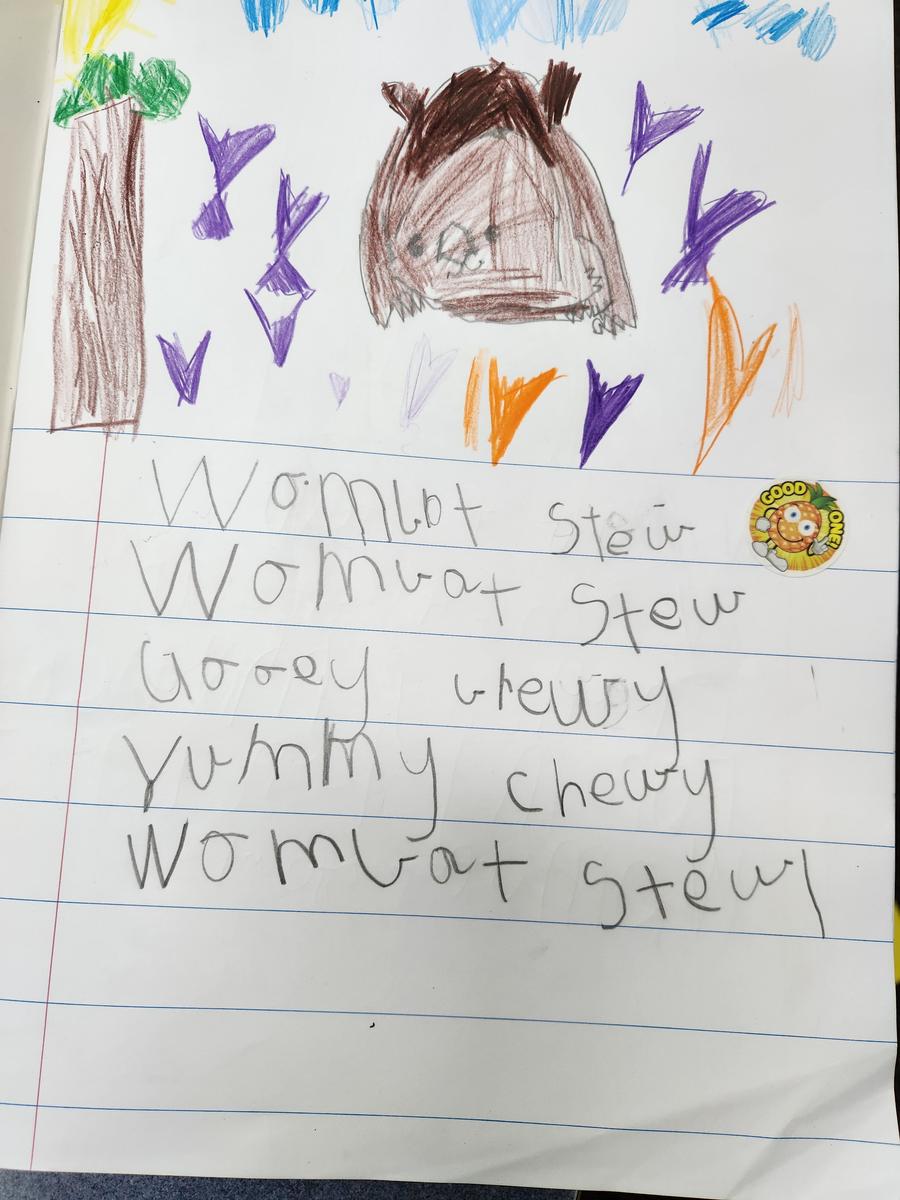 Wombat stew
GOOD ONE!
Wombat stew
Gooey brewy
Yummy chewy
Wombat stew!